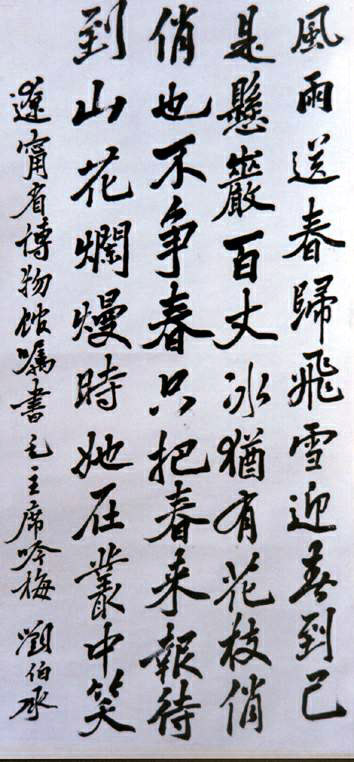 風雨送春歸飛雪迎春到已
是懸巖百丈冰猶有花枝俏
俏也不争春只把春来報待
到山花爛熳時她在叢中笑
遼甯省博物館囑書毛主席咏梅 劉伯承